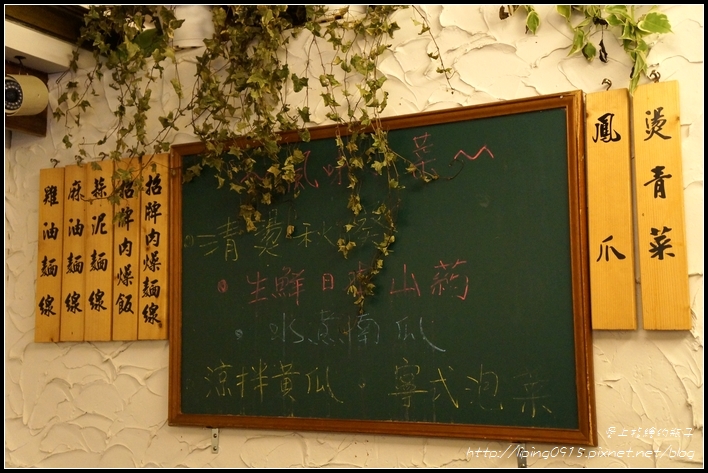 燙青菜
鳳爪
味菜~
清燙秋葵
生鮮日本山藥
水煮南瓜
涼拌黃瓜。寧式泡菜
招牌肉燥麵線
招牌肉燥飯
蒜泥麵線
麻油麵線
雞油麵線
http://liping0915.pixnet.net/blog